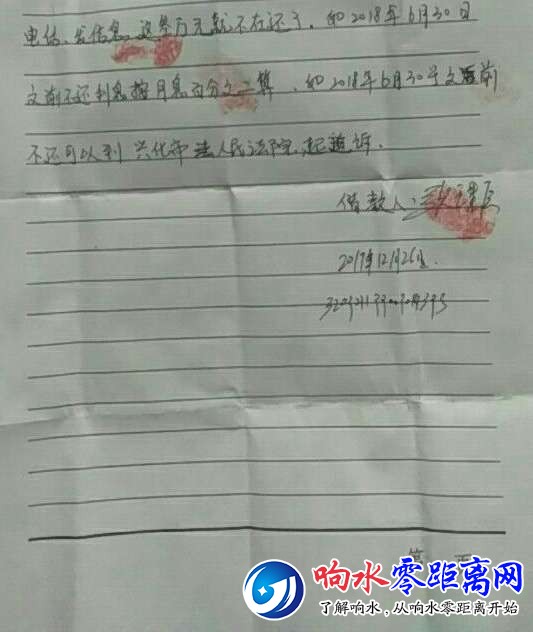 电话、发信息,这叁万元就不在还了,如2018年6月30日
之前不还利息按月息百分之二算,如2018年6月30号之前
不还可以到兴化市人民法院起诉。
借款人:
2017年12月26日
第 页
响水零距离网
了解响水,从响水零距离开始